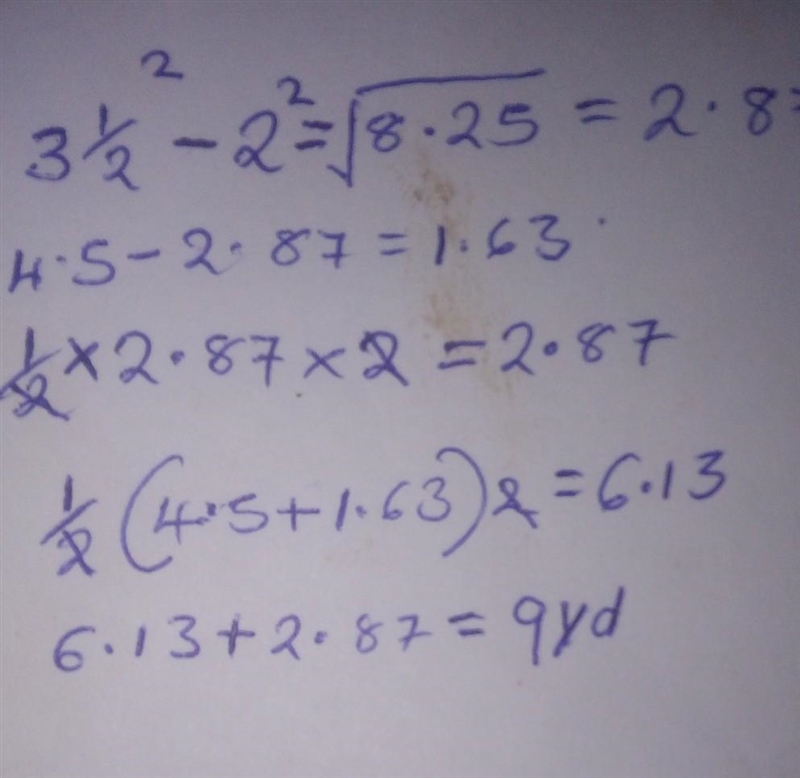 3 1/2² - 2² = √8.25 = 2.8
4.5 - 2.87 = 1.63
1/2 × 2.87 × 2 = 2.87
1/2 (4.5 + 1.63) 2 = 6.13
6.13 + 2.87 = 9yd